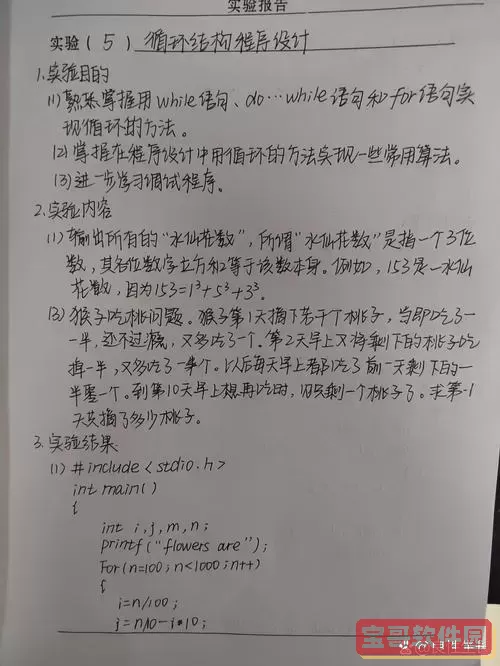 实验报告
实验(5) 循环结构程序设计
1.实验目的
(1)熟练掌握用while语句、do…while语句和for语句实
现循环的方法。
(2)掌握在程序设计中用循环的方法实现一些常用算法。
(3)进一步学习调试程序。
2.实验内容
(1)输出所有的“水仙花数”,所谓“水仙花数”是指一个3位
数,其各位数字立方和等于该数本身。例如,153是一水仙
花数,因为153=1³+5³+3³。
(3)猴子吃桃问题。猴子第1天摘下若干个桃子,当即吃了一
一半,还不过瘾,又多吃了一个。第2天早上又将剩下的桃子吃
掉一半,又多吃了一个。以后每天早上都吃了前一天剩下的一
半零一个。到第10天早上想再吃时,只剩一个桃子了。求第1
天共摘了多少桃子。
3.实验结果
(1) #include<stdio.h>
int main()
{
int i,j,m,n;
printf("flowers are");
For(n=100;n<1000;n++)
{
i=n/100;
j=n/10-i*10;
宝哥软件园